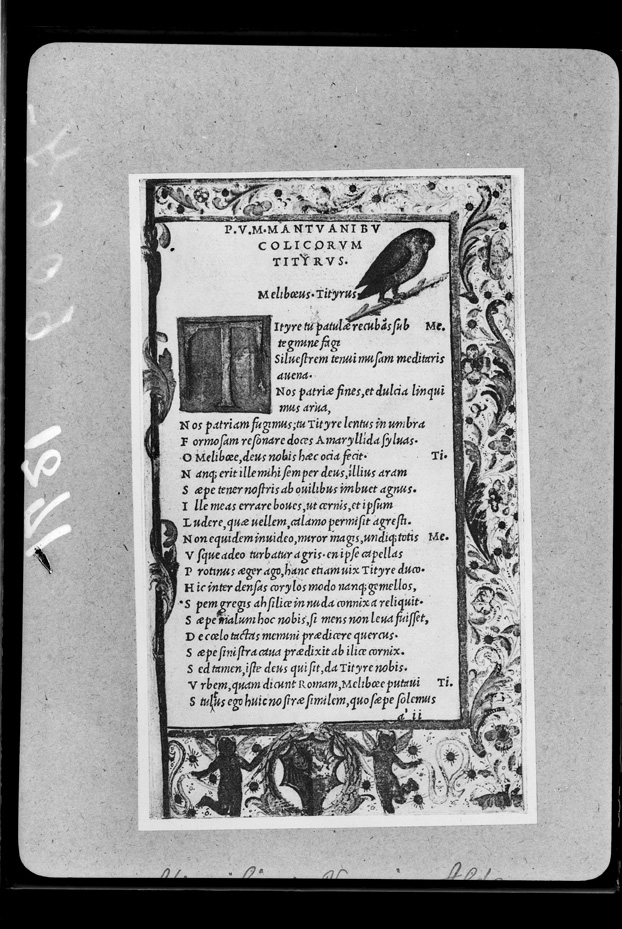 P. V. M. MANTVANI BV
COLICORVM
TITYRVS.
Melibœus. Tityrus.
TItyre tu patulæ recubās sub Me.
tegmine fagi
Siluestrem tenui musam meditaris
auena.
Nos patriæ fines, et dulcia linqui
mus arua,
Nos patriam fugimus; tu Tityre lentus in umbra
Formosam resonare doces Amaryllida syluas.
O Melibœe, deus nobis hæc ocia fecit. Ti.
Nanq; erit ille mihi semper deus, illius aram
Sæpe tener nostris ab ouilibus imbuet agnus.
Ille meas errare boues, ut cernis, et ipsum
Ludere, quæ uellem, calamo permisit agresti.
Non equidem inuideo, miror magis, undiq; totis Me.
Vsque adeo turbatur agris. en ipse capellas
Protinus æger ago, hanc etiam uix Tityre duco.
Hic inter densas corylos modo nanq; gemellos,
Spem gregis ah silice in nuda connixa reliquit.
Sæpe malum hoc nobis, si mens non leua fuisset,
De cœlo tactas memini prædicere quercus.
Sæpe sinistra caua prædixit ab ilice cornix.
Sed tamen, iste deus qui sit, da Tityre nobis.
Vrbem, quam dicunt Romam, Melibœe putaui Ti.
Stultus ego huic nostræ similem, quo sæpe solemus
a ii